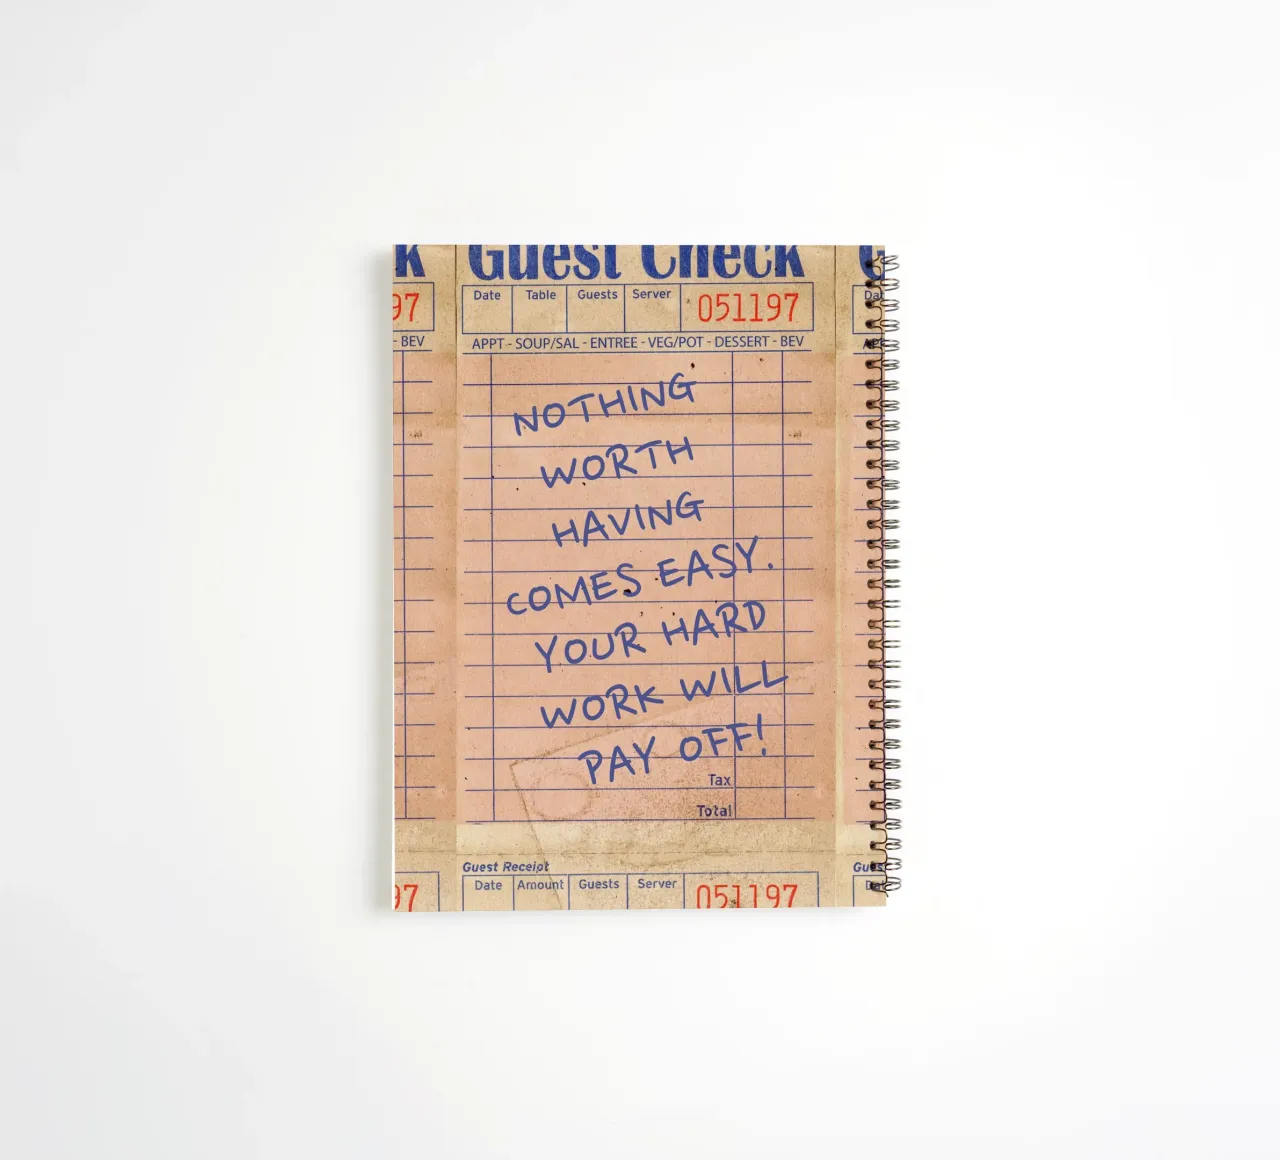 k Guest Check G
97 Date Table Guests Server 051197 Da
- BEV APPT - SOUP/SAL - ENTREE - VEG/POT - DESSERT - BEV AP
NOTHING
WORTH
HAVING
COMES EASY.
YOUR HARD
WORK WILL
PAY OFF!
Tax
Total
Guest Receipt Gues
97 Date Amount Guests Server 051197 Da